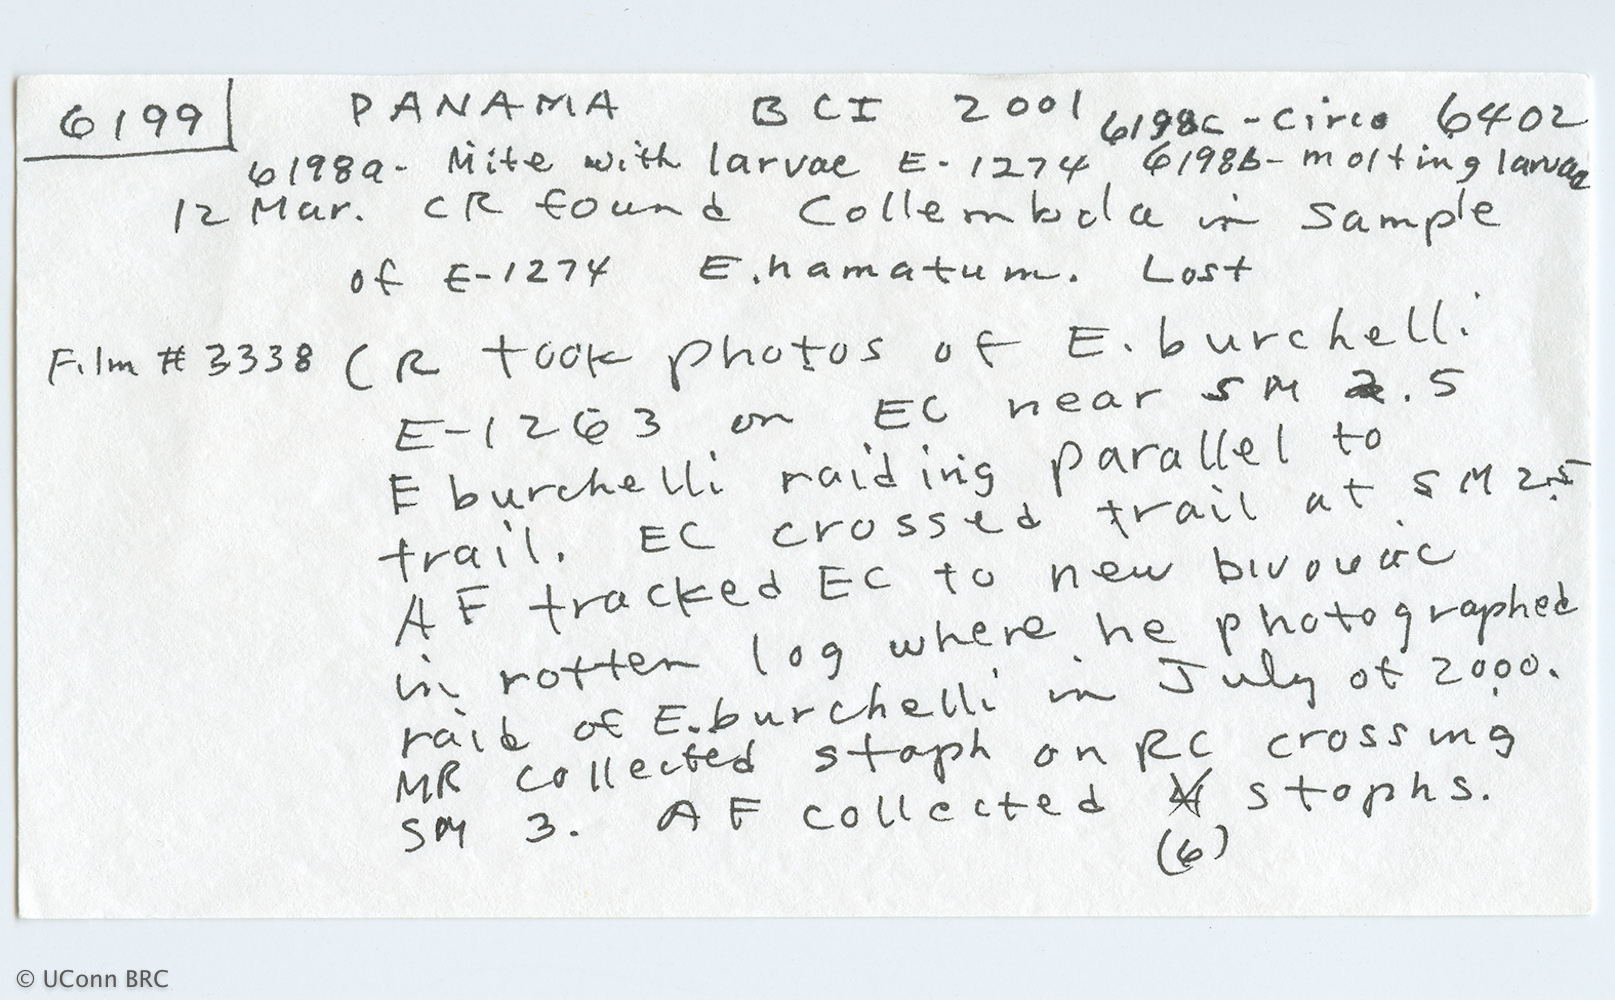 6199 PANAMA BCI 2001 6198c - Circo 6402
6198a- Mite with larvae E-1274 6198b- molting larvae
12 Mar. CR found Collembola in sample
of E-1274 E.hamatum. Lost
Film # 3338 CR took photos of E. burchelli
E-1263 on EC near SM 2.5
E burchelli raiding parallel to
trail. EC crossed trail at SM 2.5
AF tracked EC to new bivouac
in rotten log where he photographed
raid of E.burchelli in July of 2000.
MR collected staph on RC crossing
SM 3. AF collected staphs.
(6)
© UConn BRC